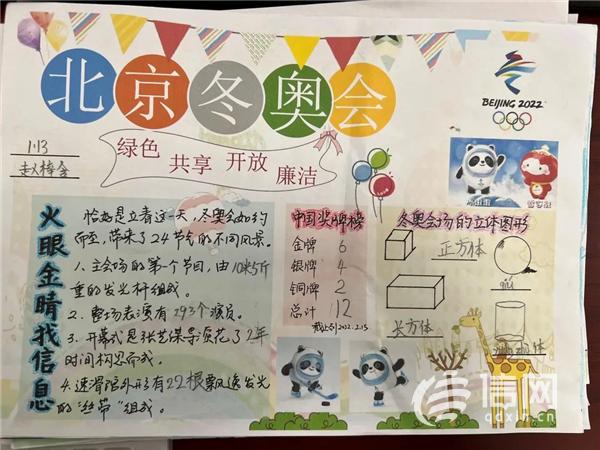 北京冬奥会
BEIJING 2022
绿色 共享 开放 廉洁
1.13
火眼金睛找信息
恰好是立春这一天,冬奥会如约
而至,带来了24节气的不同风景。
1.主会场的第一个节目,由10米5斤
重的发光杆组成。
2.曹场表演有293个演员。
3.开幕式是张艺谋导演花了2年
时间构思而成。
4.速滑馆外形有22根飘逸发光
的"丝带"组成。
中国奖牌榜
金牌 6
银牌 4
铜牌 2
总计 12
截止到2022.2.15
冬奥会场的立体图形
正方体
球
长方体
圆柱体
冰墩墩
雪容融
信网
qdxin.cn